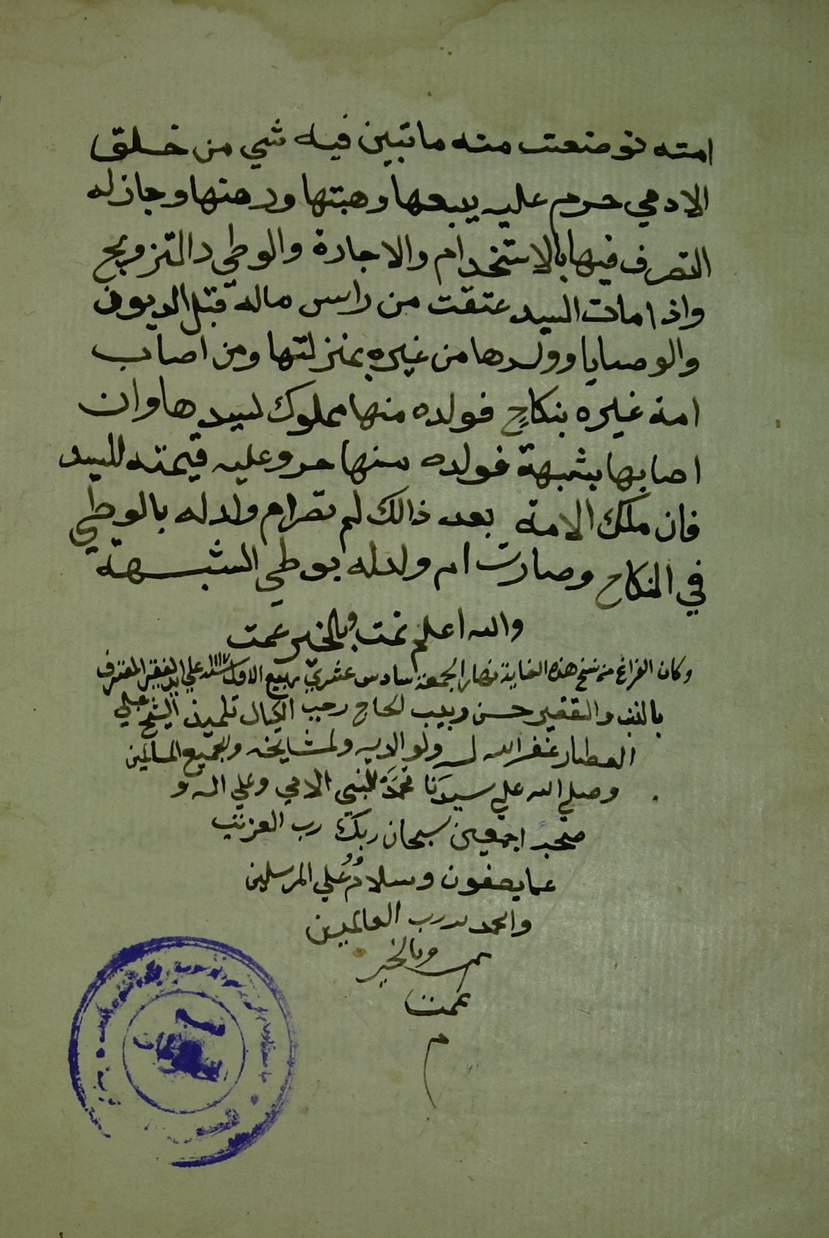 امته فوضعت منه ما تبين فيه شي من خلق
الادمي حرم عليه بيعها وهبتها ورهنها وجاز له
التصرف فيها بالاستخدام والاجارة والوطي والتزويج
واذا مات السيد عتقت من راس ماله قبل الديون
والوصايا وولدها من غيره بمنزلتها ومن اصاب
امة غيره بنكاح فولده منها مملوك لسيدها وان
اصابها بشبهة فولده منها حر وعليه قيمته للسيد
فان ملك الامة بعد ذالك لم تصرام ولد له بالوطي
في النكاح وصارت ام ولد له بوطي الشبهة
والله اعلم تمت وبالخير عمت
وكان الفراغ من نسخ هذه الغاية نهار الجمعة سادس عشري ربيع الاول علي يد الفقير المعترف
بالذنب والتقصير حسن وبيب الحاج رجب الكيال تلميذ الشيخ علي
العطار غفر الله له ولوالديه ولمشايخه ولجميع المسلمين
وصلي الله علي سيدنا محمد النبي الامي وعلي اله و
صحبه اجمعين سبحان ربك رب العزت
عما يصفون وسلام علي المرسلين
والحمد لله رب العالمين
تمت وبالخير
عمت
م